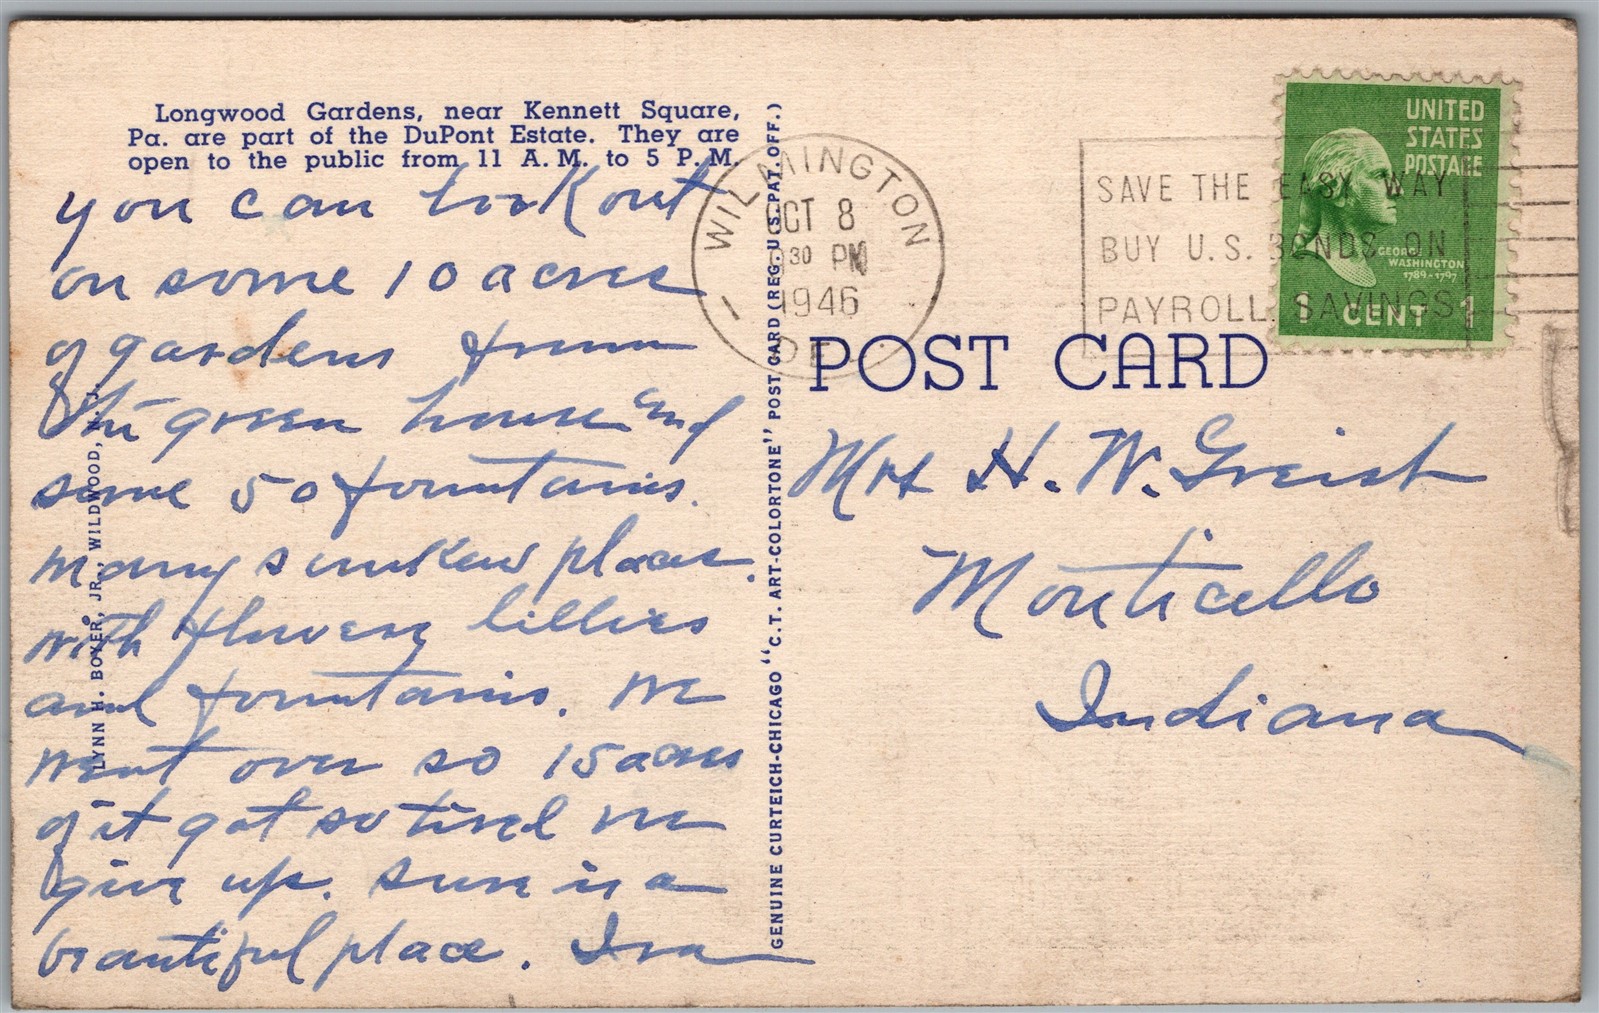 Longwood Gardens, near Kennett Square,
Pa. are part of the DuPont Estate. They are
open to the public from 11 A.M. to 5 P.M.
you can look out
on some 10 acres
of gardens from
the green house and
some 50 fountains.
many sunken places.
with flowers lillies
and fountains. We
went over so 15 acres
of it got so tired we
give up. sure is a
beautiful place. Ira
LYNN H. BOYER, JR., WILDWOOD, N.J.
GENUINE CURTEICH-CHICAGO "C.T. ART-COLORTONE" POST CARD (REG. U.S. PAT. OFF.)
WILMINGTON
OCT 8
30 PM
1946
DE
SAVE THE EASY WAY
BUY U.S. BONDS ON
PAYROLL SAVINGS
UNITED
STATES
POSTAGE
GEORGE
WASHINGTON
1789-1797
1 CENT 1
POST CARD
Mrs H. W. Greist
Monticello
Indiana